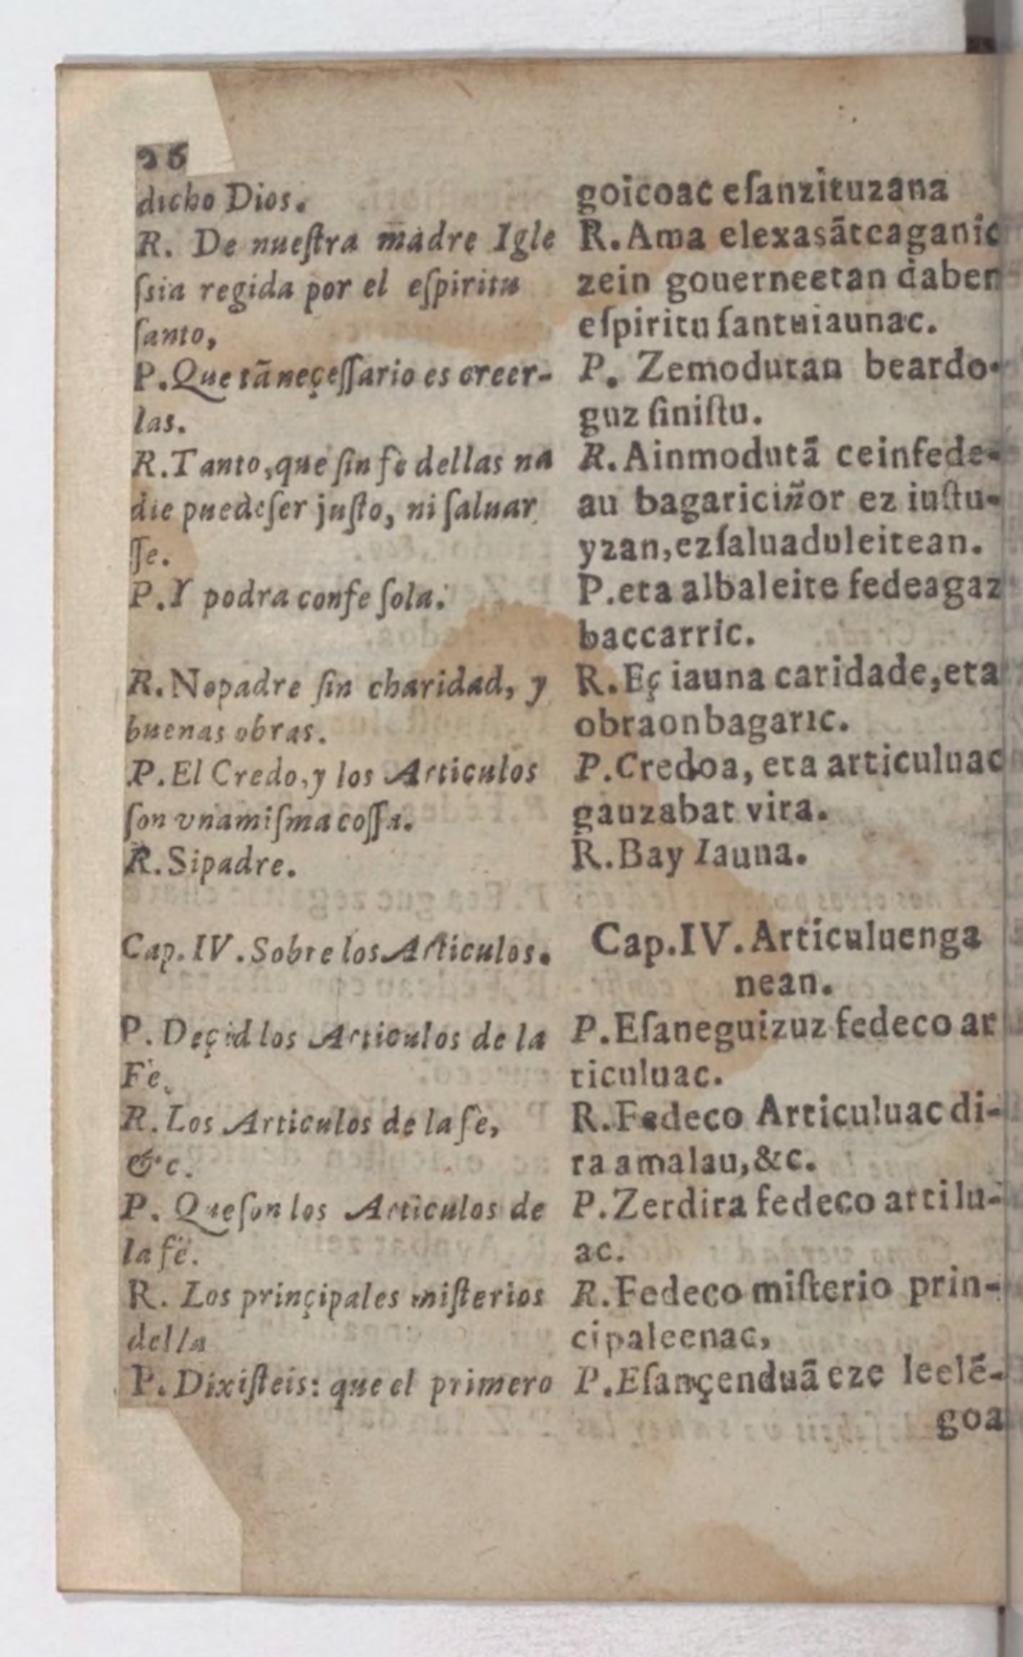 26
dicho Dios.
R. De nueſtra madre Igle
ſsia regida por el eſpiritu
ſanto,
P. Que tã neçeſſario es creer-
las.
R. Tanto, que ſin fè dellas na
die puede ſer juſto, ni ſaluar
ſſe.
P. Y podra con fe ſola.
R. No padre ſin charidad, y
buenas obras.
P. El Credo, y los Articulos
ſon vna miſma coſſa.
R. Si padre.
Cap. IV. Sobre los Articulos.
P. Deçid los Articulos de la
Fè.
R. Los Articulos de la fè,
&c.
P. Que ſon los Articulos de
la fè.
R. Los prinçipales miſterios
della
P. Dixiſteis: que el primero
goicoac eſanzituzana
R. Ama elexasãtcaganic
zein gouerneetan daben
eſpiritu ſantuiaunac.
P. Zemodutan beardo-
guz ſiniſtu.
R. Ainmodutã ceinfede-
au bagariciñor ez iuſtu-
yzan, ezſaluaduleitean.
P. eta albaleite fedeagaz
baccarric.
R. Eç iauna caridade, eta
obraonbagaric.
P. Credoa, eta articuluac
gauzabat vira.
R. Bay Iauna.
Cap. IV. Articuluenga
nean.
P. Eſaneguizuz fedeco ar
ticuluac.
R. Fedeco Articuluac di-
ra amalau, &c.
P. Zerdira fedeco artilu-
ac.
R. Fedeco miſterio prin-
cipaleenac,
P. Eſançenduã eze leelẽ-
goa